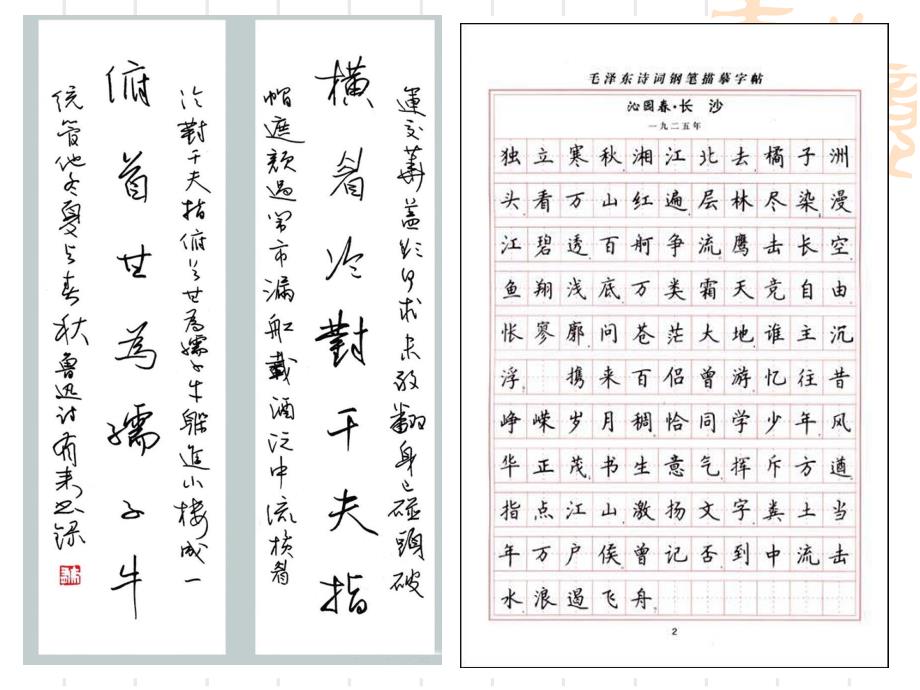 運交華蓋欲何求未敢翻身已碰頭破
橫眉冷對千夫指
帽遮顏過鬧市漏舡載酒泛中流橫眉
冷對千夫指俯首甘為孺子牛躲進小樓成一
俯首甘為孺子牛
統管他冬夏与春秋魯迅詩
毛泽东诗词钢笔描摹字帖
沁园春·长 沙
一九二五年
独立寒秋湘江北去橘子洲
头看万山红遍层林尽染漫
江碧透百舸争流鹰击长空
鱼翔浅底万类霜天竞自由
怅寥廓问苍茫大地谁主沉
浮 携来百侣曾游忆往昔
峥嵘岁月稠恰同学少年风
华正茂书生意气挥斥方遒
指点江山激扬文字粪土当
年万户侯曾记否到中流击
水浪遏飞舟
2